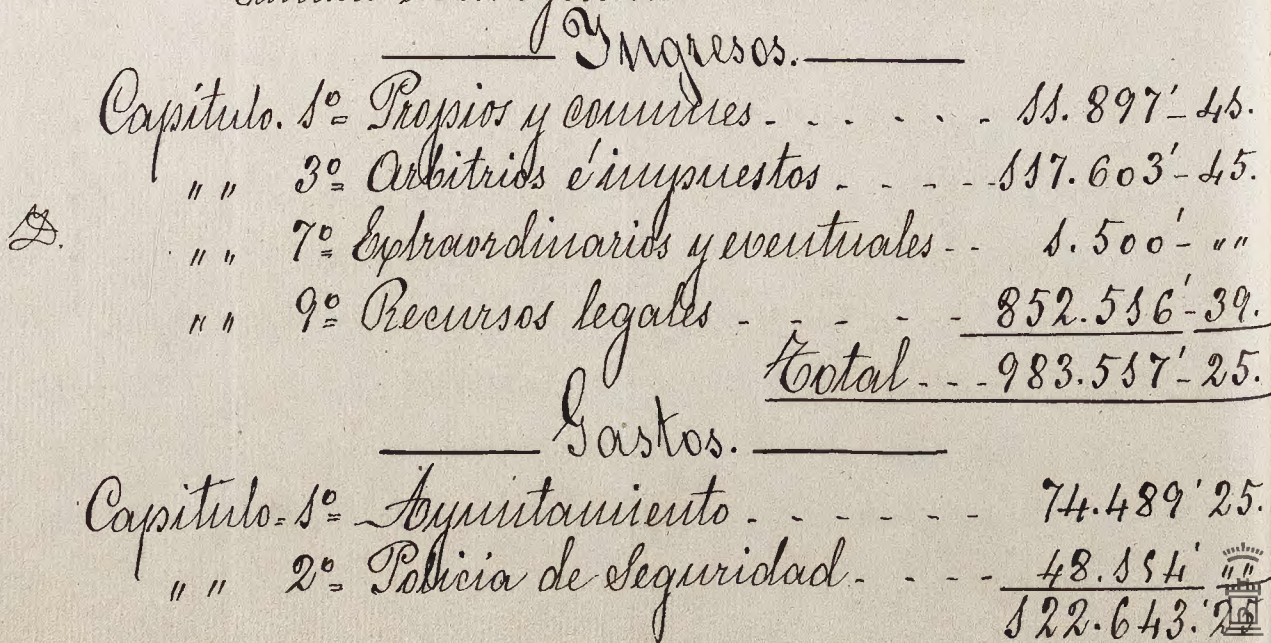 Ingresos.
Capítulo. 1º Propios y comunes - - - - - - 11.897'- 41.
" " 3º Arbitrios é impuestos - - - - 117.603'- 45.
" " 7º Extraordinarios y eventuales - - 1.500'- " "
" " 9º Recursos legales - - - - - 852.516'- 39.
Total - - - 983.517'- 25.
Gastos.
Capitulo - 1º Ayuntamiento - - - - - - 74.489' 25.
" " 2º Policia de Seguridad - - - - 48.154' " "
122.643.' 25